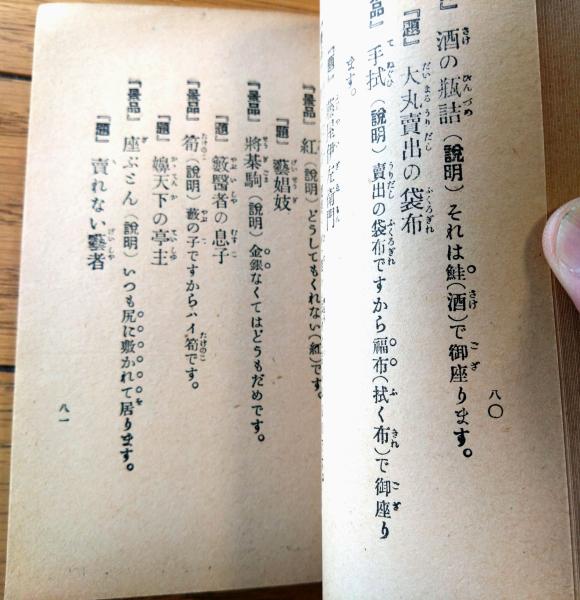 』酒の瓶詰(說明)それは鮭(酒)で御座ります。
『題』大丸賣出の袋布
景品』手拭(說明)賣出の袋布ですから福布(拭く布)で御座り
ます。
八〇
『景品』紅(說明)どうしてもくれない(紅)です。
『題』藝娼妓
『景品』將棊駒(說明)金銀なくてはどうもだめです。
『題』籔醫者の息子
『景品』筍(說明)藪の子ですからハイ筍です。
『題』嬶天下の亭主
『景品』座ぶとん(說明)いつも尻に敷かれて居ります。
『題』賣れない藝者
八一